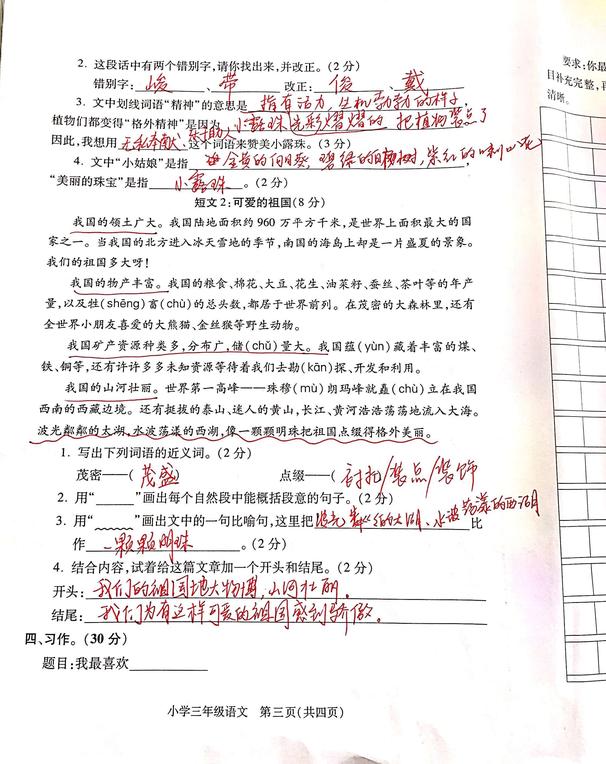 2. 这段话中有两个错别字,请你找出来,并改正。(2分)
错别字: 峻 、 带 改正: 俊 、 戴
3. 文中划线词语“精神”的意思是 指有活力,生机勃勃的样子,
植物们都变得“格外精神”是因为 小露珠光彩熠熠的 把植物装点了
因此,我想用 无私奉献、乐于助人 这个词语来赞美小露珠。(3分)
4. 文中“小姑娘”是指 金黄的向日葵,碧绿的白杨树,紫红的喇叭花
“美丽的珠宝”是指 小露珠 。(2分)
短文2:可爱的祖国(8分)
我国的领土广大。我国陆地面积约960万平方千米,是世界上面积最大的国
家之一。当我国的北方进入冰天雪地的季节,南国的海岛上却是一片盛夏的景象。
我们的祖国多大呀!
我国的物产丰富。我国的粮食、棉花、大豆、花生、油菜籽、蚕丝、茶叶等的年产
量,以及牲(shēng)畜(chù)的总头数,都居于世界前列。在茂密的大森林里,还有
全世界小朋友喜爱的大熊猫、金丝猴等野生动物。
我国矿产资源种类多,分布广,储(chǔ)量大。我国蕴(yùn)藏着丰富的煤、
铁、铜等,还有许许多多未知资源等待着我们去勘(kān)探、开发和利用。
我国的山河壮丽。世界第一高峰——珠穆(mù)朗玛峰就矗(chù)立在我国
西南的西藏边境。还有挺拔的泰山、迷人的黄山,长江、黄河浩浩荡荡地流入大海。
波光粼粼的太湖,水波荡漾的西湖,像一颗颗明珠把祖国点缀得格外美丽。
1. 写出下列词语的近义词。(2分)
茂密——( 茂盛 ) 点缀——( 衬托/装点/装饰
2. 用“____”画出每个自然段中能概括段意的句子。(2分)
3. 用“﹏﹏”画出文中的一句比喻句,这里把 波光粼粼的太湖、水波荡漾的西湖 比
作 一颗颗明珠 。(2分)
4. 结合内容,试着给这篇文章加一个开头和结尾。(2分)
开头: 我们的祖国地大物博,山河壮丽。
结尾: 我们为有这样可爱的祖国感到骄傲。
四、习作。(30分)
题目:我最喜欢________
小学三年级语文 第三页(共四页)
要求:你最
目补充完整,再
清晰。